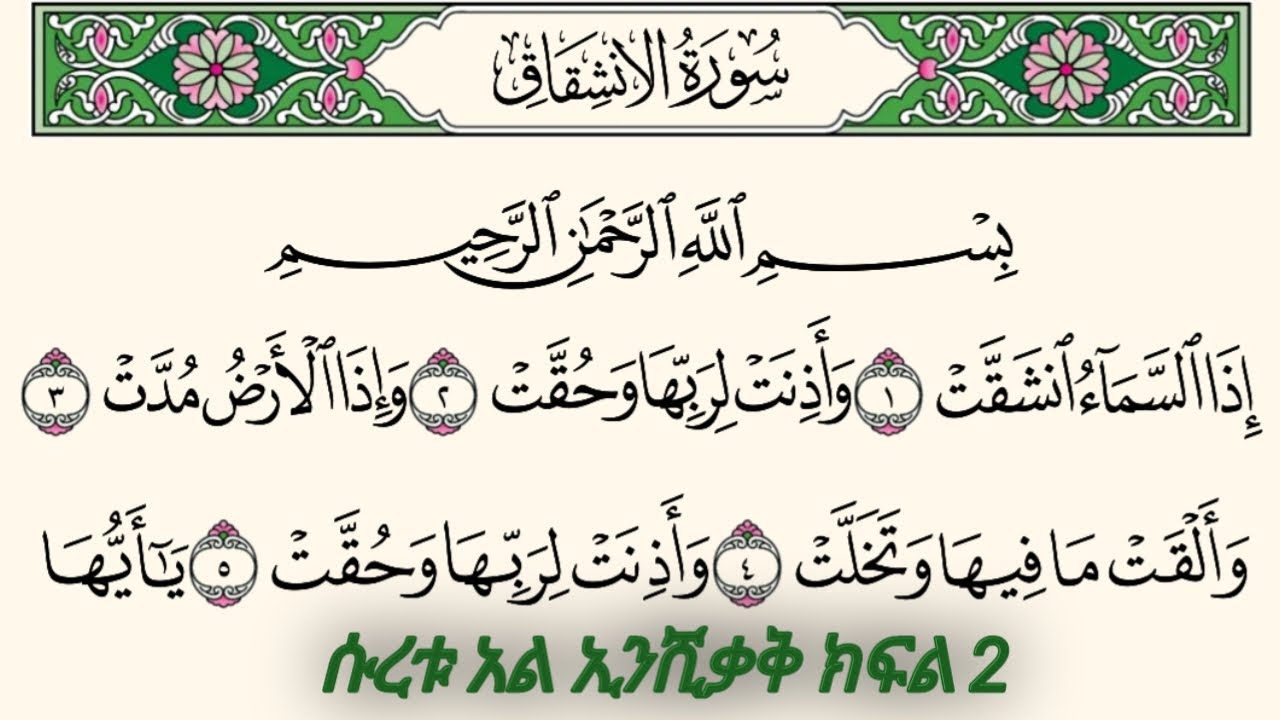 سُورَةُ الانشِقَاقِ
بِسْمِ ٱللَّهِ ٱلرَّحْمَٰنِ ٱلرَّحِيمِ
إِذَا ٱلسَّمَآءُ ٱنشَقَّتْ ١ وَأَذِنَتْ لِرَبِّهَا وَحُقَّتْ ٢ وَإِذَا ٱلْأَرْضُ مُدَّتْ ٣
وَأَلْقَتْ مَا فِيهَا وَتَخَلَّتْ ٤ وَأَذِنَتْ لِرَبِّهَا وَحُقَّتْ ٥ يَٰٓأَيُّهَا
ሱረቱ አል ኢንሺቃቅ ክፍል 2